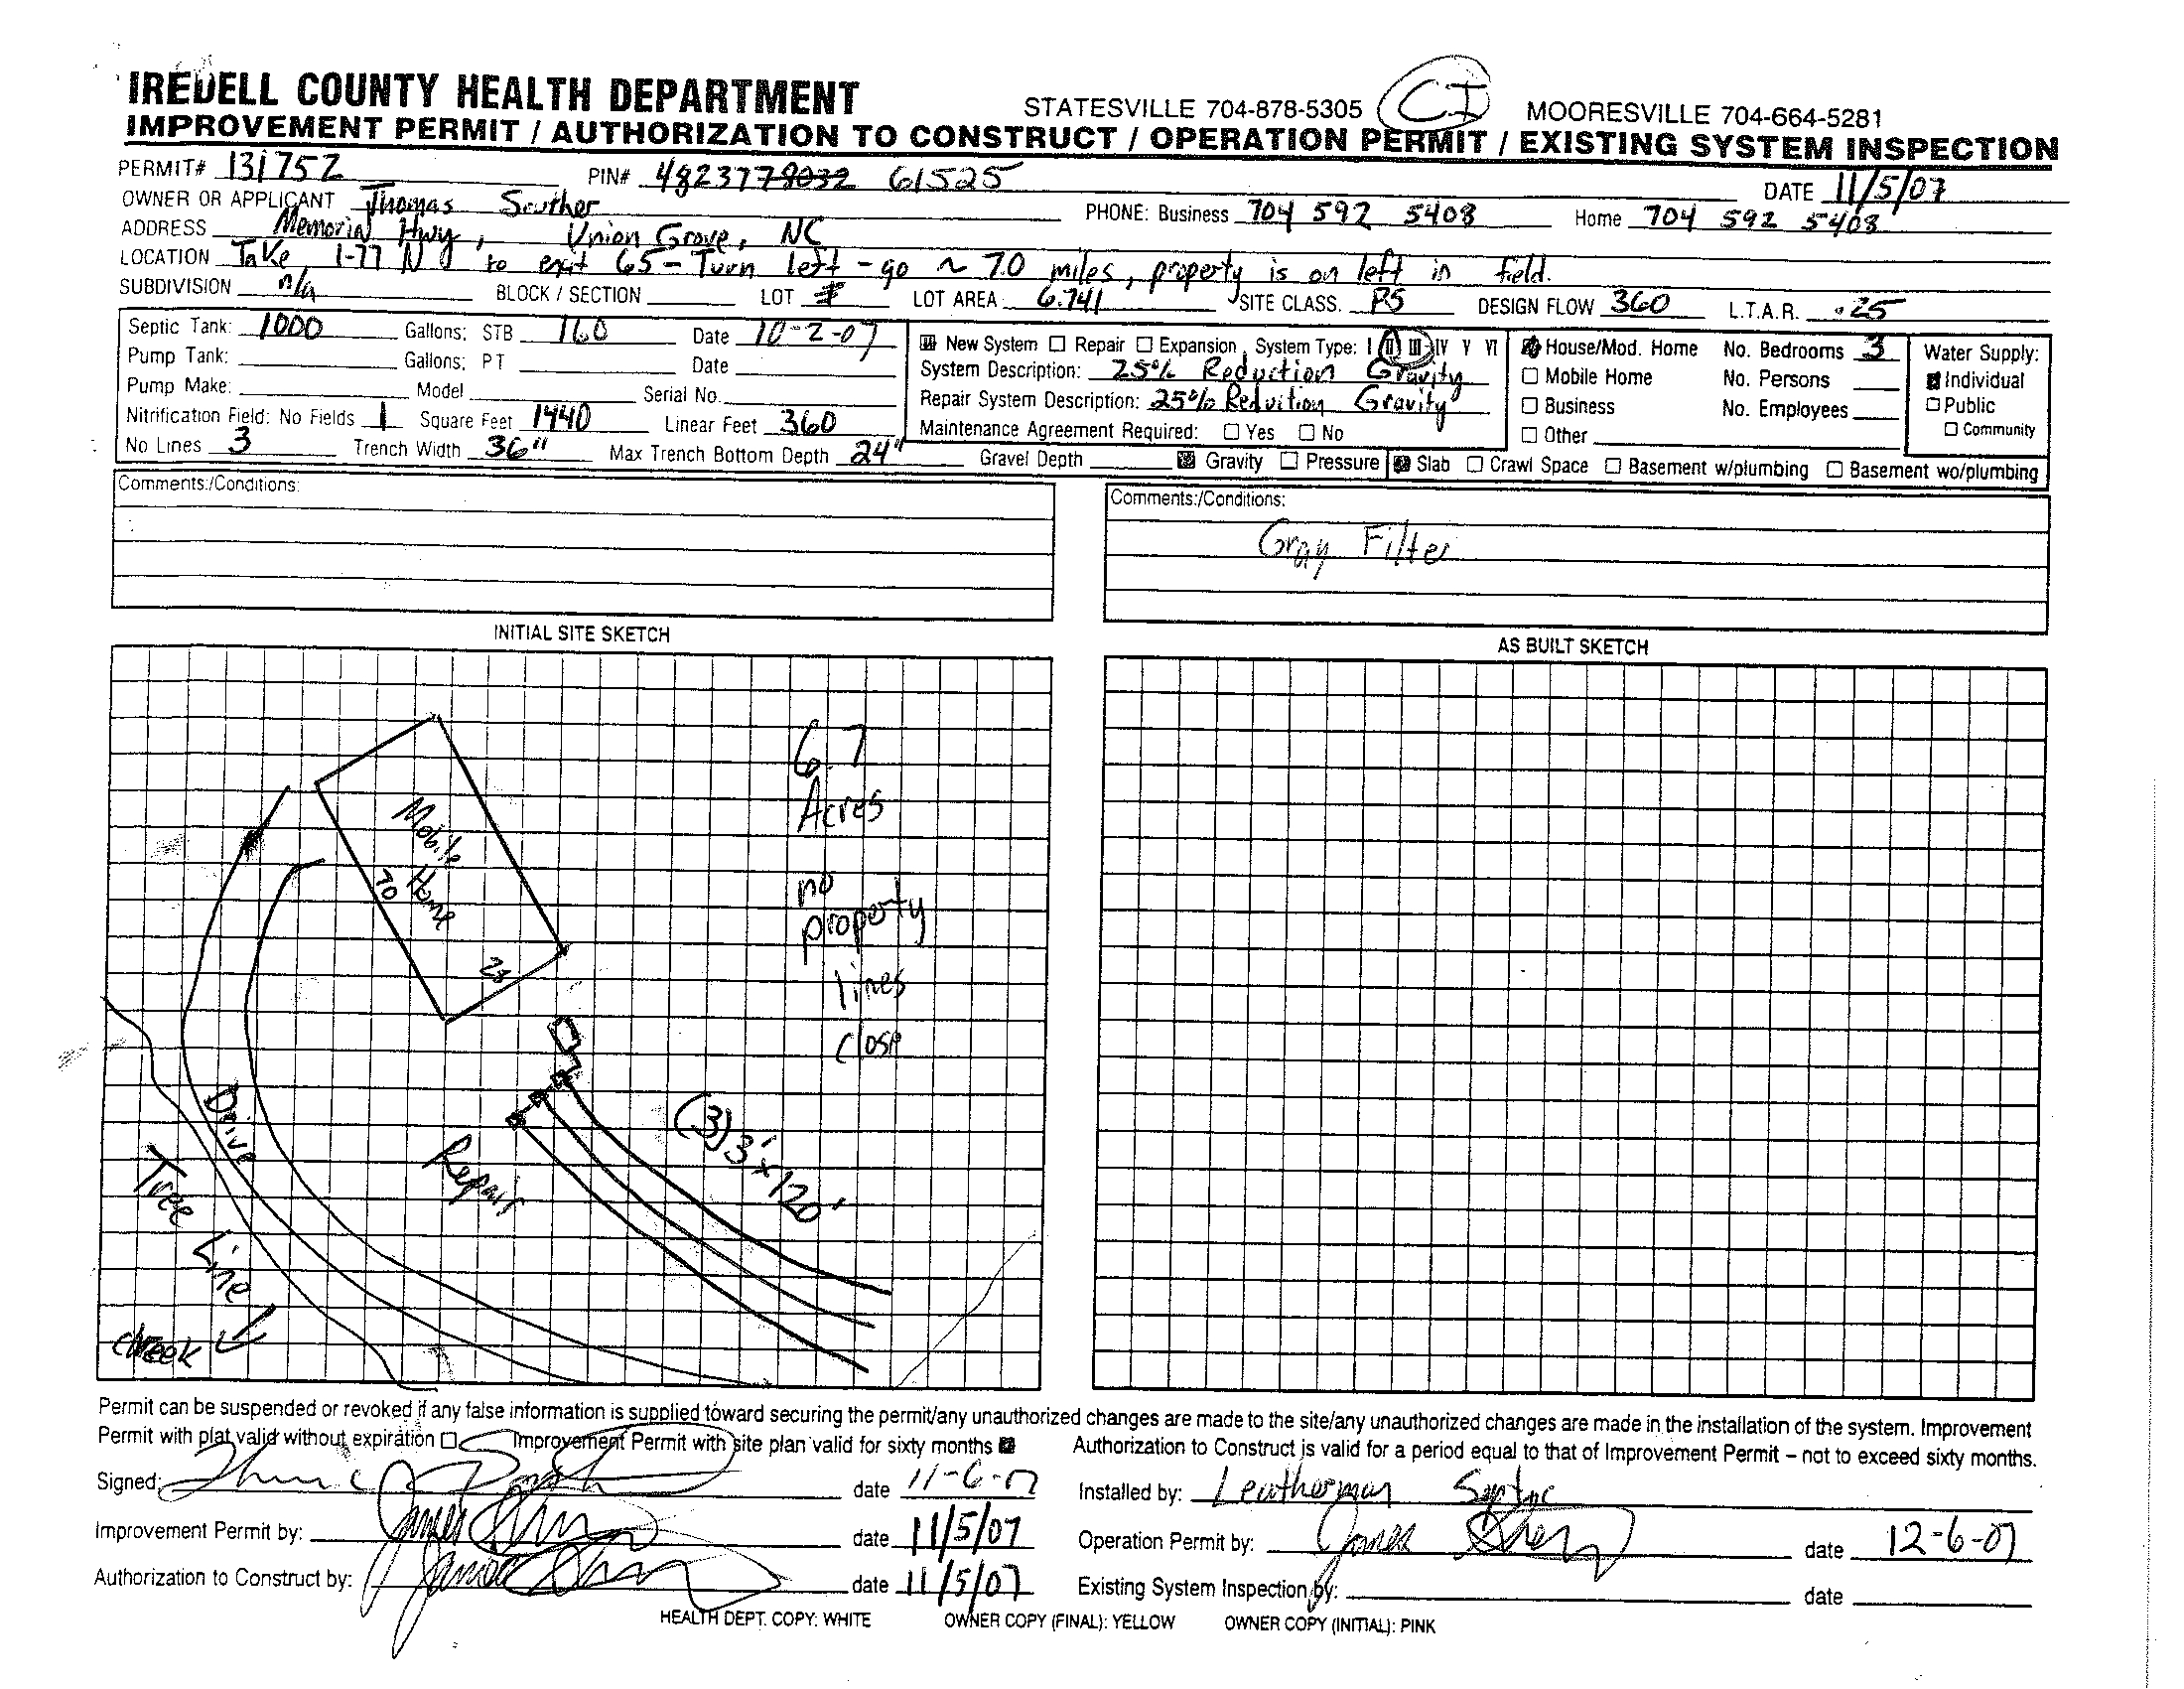 IREDELL COUNTY HEALTH DEPARTMENT
STATESVILLE 704-878-5305 CI MOORESVILLE 704-664-5281
IMPROVEMENT PERMIT / AUTHORIZATION TO CONSTRUCT / OPERATION PERMIT / EXISTING SYSTEM INSPECTION
PERMIT# 131752 PIN# 4823778032 61525 DATE 11/5/07
OWNER OR APPLICANT Thomas Souther PHONE: Business 704 592 5408 Home 704 592 5408
ADDRESS Memorial Hwy, Union Grove, NC
LOCATION Take I-77 N to exit 65 - Turn left - go ~ 7.0 miles, property is on left in field.
SUBDIVISION n/a BLOCK / SECTION LOT LOT AREA 6.741 SITE CLASS. PS DESIGN FLOW 360 L.T.A.R. .25
Septic Tank: 1000 Gallons: STB 160 Date 10-2-07
Pump Tank: Gallons: PT Date
Pump Make: Model Serial No.
Nitrification Field: No Fields 1 Square Feet 1440 Linear Feet 360
No Lines 3 Trench Width 36" Max Trench Bottom Depth 24" Gravel Depth Gravity Pressure
New System Repair Expansion System Type: I II III IV V VI
System Description: 25% Reduction Gravity
Repair System Description: 25% Reduition Gravity
Maintenance Agreement Required: Yes No
House/Mod. Home No. Bedrooms 3
Mobile Home No. Persons
Business No. Employees
Other
Water Supply:
Individual
Public
Community
Slab Crawl Space Basement w/plumbing Basement wo/plumbing
Comments:/Conditions:
Comments:/Conditions:
Gray Filter
INITIAL SITE SKETCH
6.7
Acres
no
property
lines
close
Mobile
Home
70
28
(3) 3'x120'
Repair
Drive
Tree Line
creek
AS BUILT SKETCH
Permit can be suspended or revoked if any false information is supplied toward securing the permit/any unauthorized changes are made to the site/any unauthorized changes are made in the installation of the system. Improvement
Permit with plat valid without expiration Improvement Permit with site plan valid for sixty months Authorization to Construct is valid for a period equal to that of Improvement Permit – not to exceed sixty months.
Signed: date 11-6-07
Improvement Permit by: date 11/5/07
Authorization to Construct by: date 11/5/07
Installed by: Leatherman Septic
Operation Permit by: date 12-6-07
Existing System Inspection by: date
HEALTH DEPT. COPY: WHITE OWNER COPY (FINAL): YELLOW OWNER COPY (INITIAL): PINK